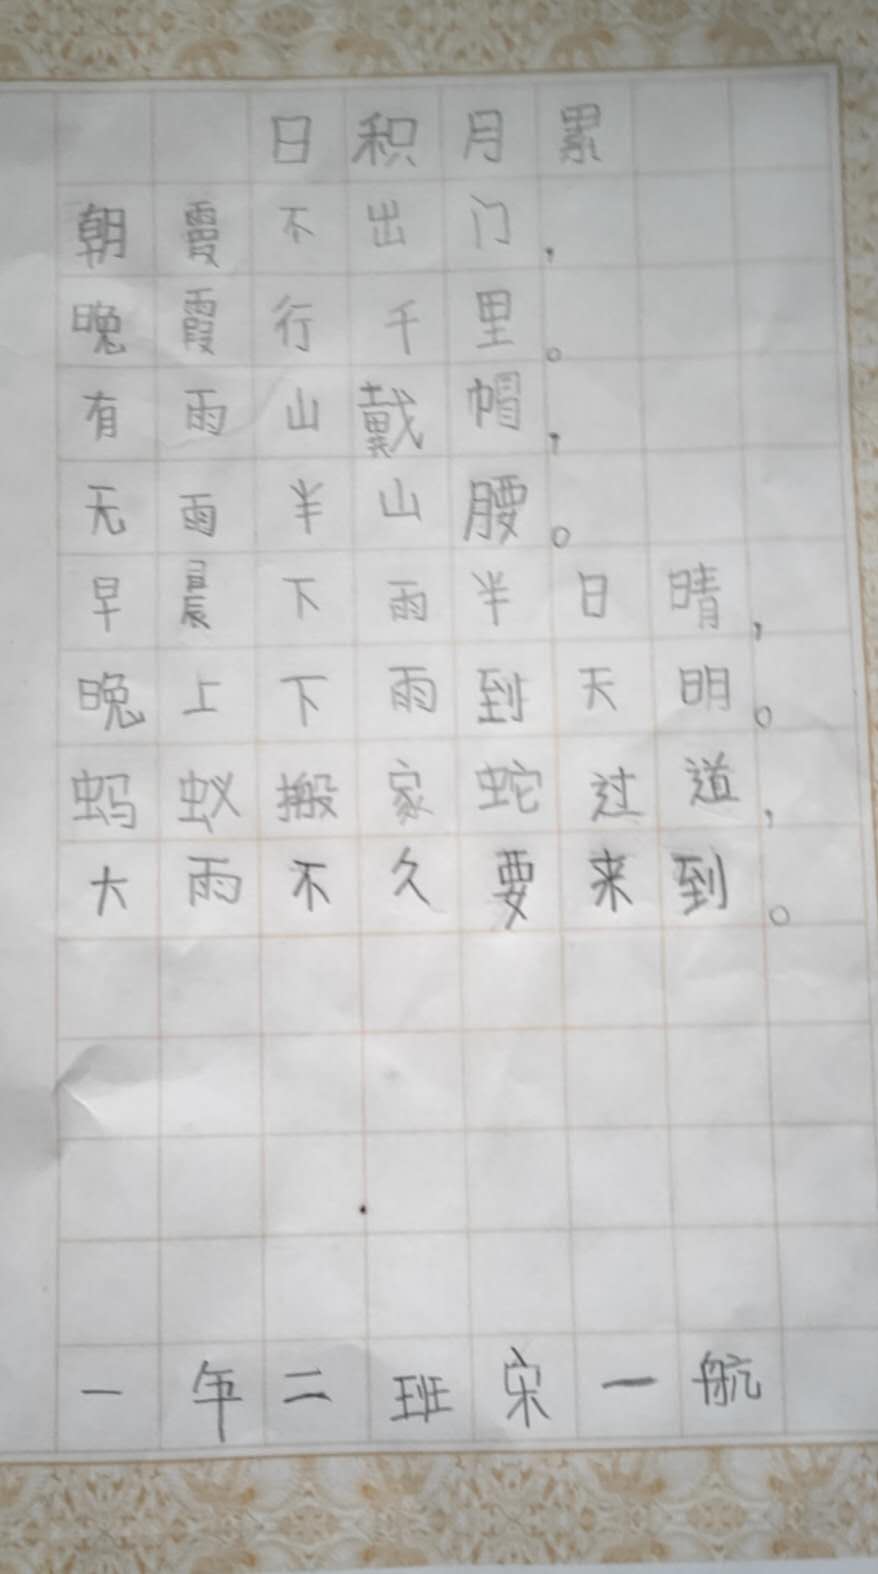 日积月累
朝霞不出门，
晚霞行千里。
有雨山戴帽，
无雨半山腰。
早晨下雨半日晴，
晚上下雨到天明。
蚂蚁搬家蛇过道，
大雨不久要来到。
一年二班宋一航